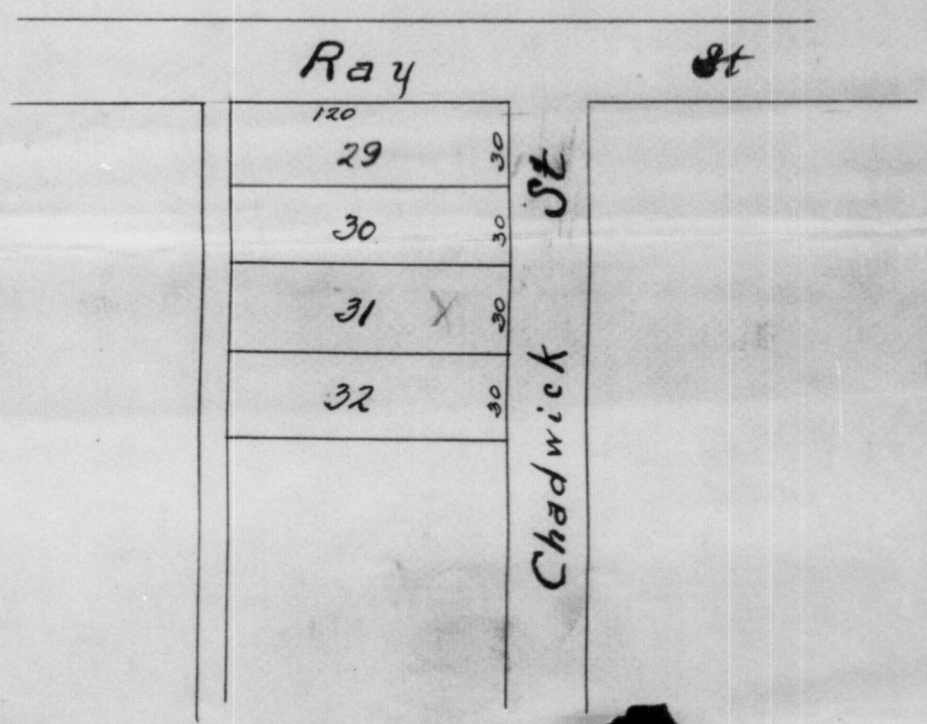 Ray St
120
29 30
30 30
31 X 30
32 30
Chadwick St